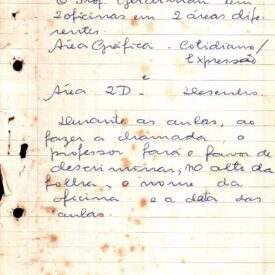 O Prof. tem
2 oficinas em 2 áreas dife
rentes.
Área Gráfica - Cotidiano/
Expressão
e
Área 2D - Desenho
Durante as aulas, ao
fazer a chamada o
professor fará o favor de
descriminar, no alto da
folha, o nome da
oficina e a data das
aulas.